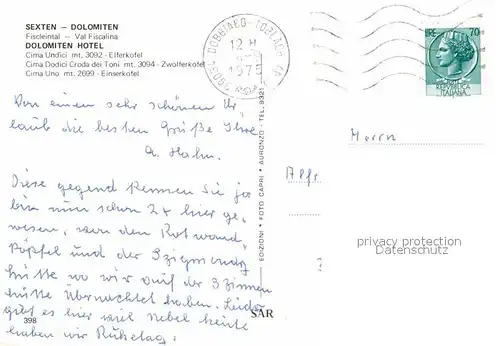 SEXTEN — DOLOMITEN
Fiscleintal — Val Fiscalina
DOLOMITEN HOTEL
Cima Undici mt. 3092 - Elferkofel
Cima Dodici Croda dei Toni mt. 3094 - Zwolferkofel
Cima Uno mt. 2699 - Einserkofel
DOBBIACO - TOBLACH
12 H
975
LIRE 70
REPUBBLICA
ITALIANA
Von einem sehr schönen Ur
laub die besten Grüße Ihre
A. Hahn.
Diese gegend kennen Sie ja
bin nun schon 2x hier ge,
wesen, von den Rotwand,
Köpfel und der
hütte wo wir auf der 3 Zinnen
hütte Übernachtet haben. Leider
gibt es hier viel Nebel heute
haben wir Ruhetag.
398
EDIZIONI * FOTO CAPRI * AURONZO - TEL. 9321
SAR
Herrn
Alfr.
privacy protection
Datenschutz